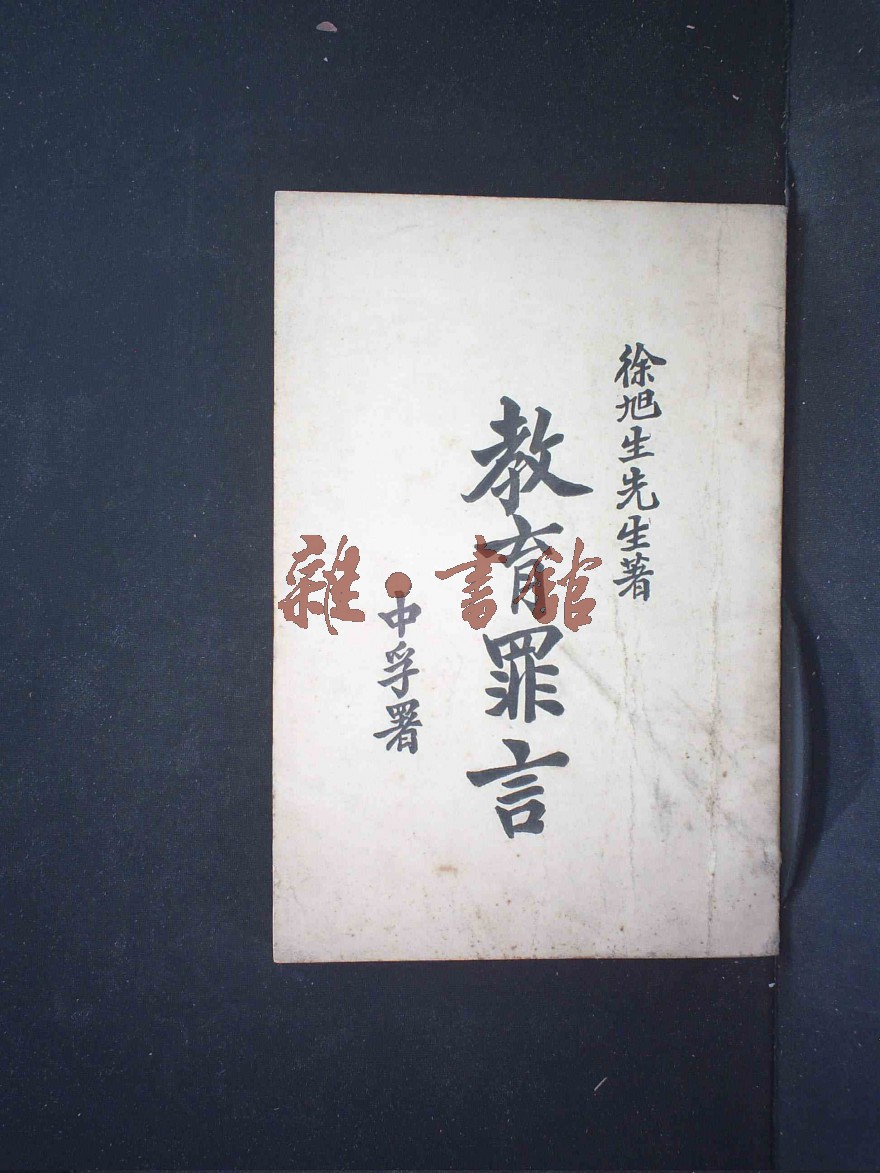 徐旭生先生著
教育罪言
中孚署
雜·書館